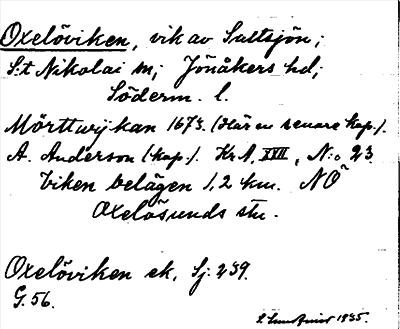 Oxelöviken, vik av Saltsjön;
S:t Nikolai sn; Jönåkers hd;
Söderm. l.
Mörttwijkan 1673. (Här en senare kap.).
A. Anderson (kap.). Kr A, XVII, N:o 23.
Viken belägen 1,2 km. NO
Oxelösunds stn.
Oxelöviken ek. Sj. 239.
G. 56.
1935.